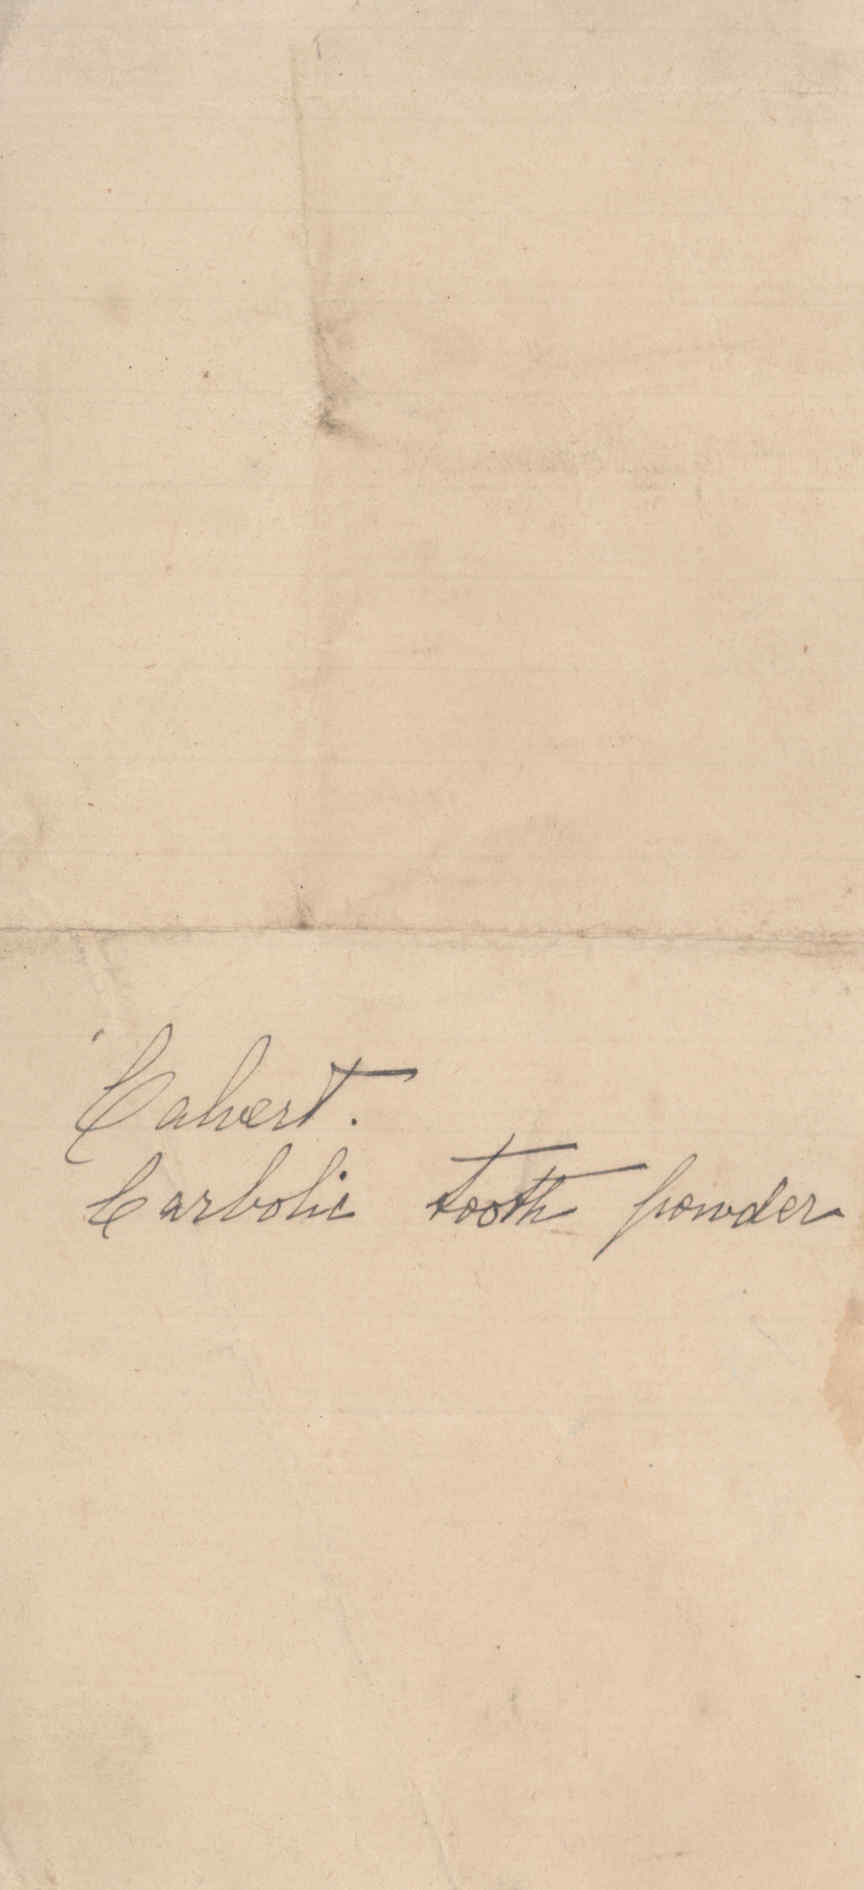 Calvert.
Carbolic tooth powder